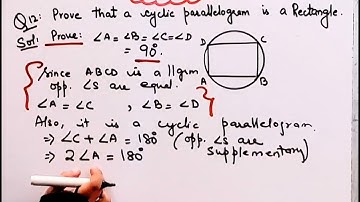 Q12: Prove that a cyclic parallelogram is a Rectangle.
Sol: Prove: ∠A = ∠B = ∠C = ∠D
= 90°.
D C
A B
Since ABCD is a ||gm
opp. ∠s are equal.
∠A = ∠C , ∠B = ∠D
Also, it is a cyclic parallelogram.
⇒ ∠C + ∠A = 180° (opp. ∠s are
Supplementory)
⇒ 2∠A = 180°